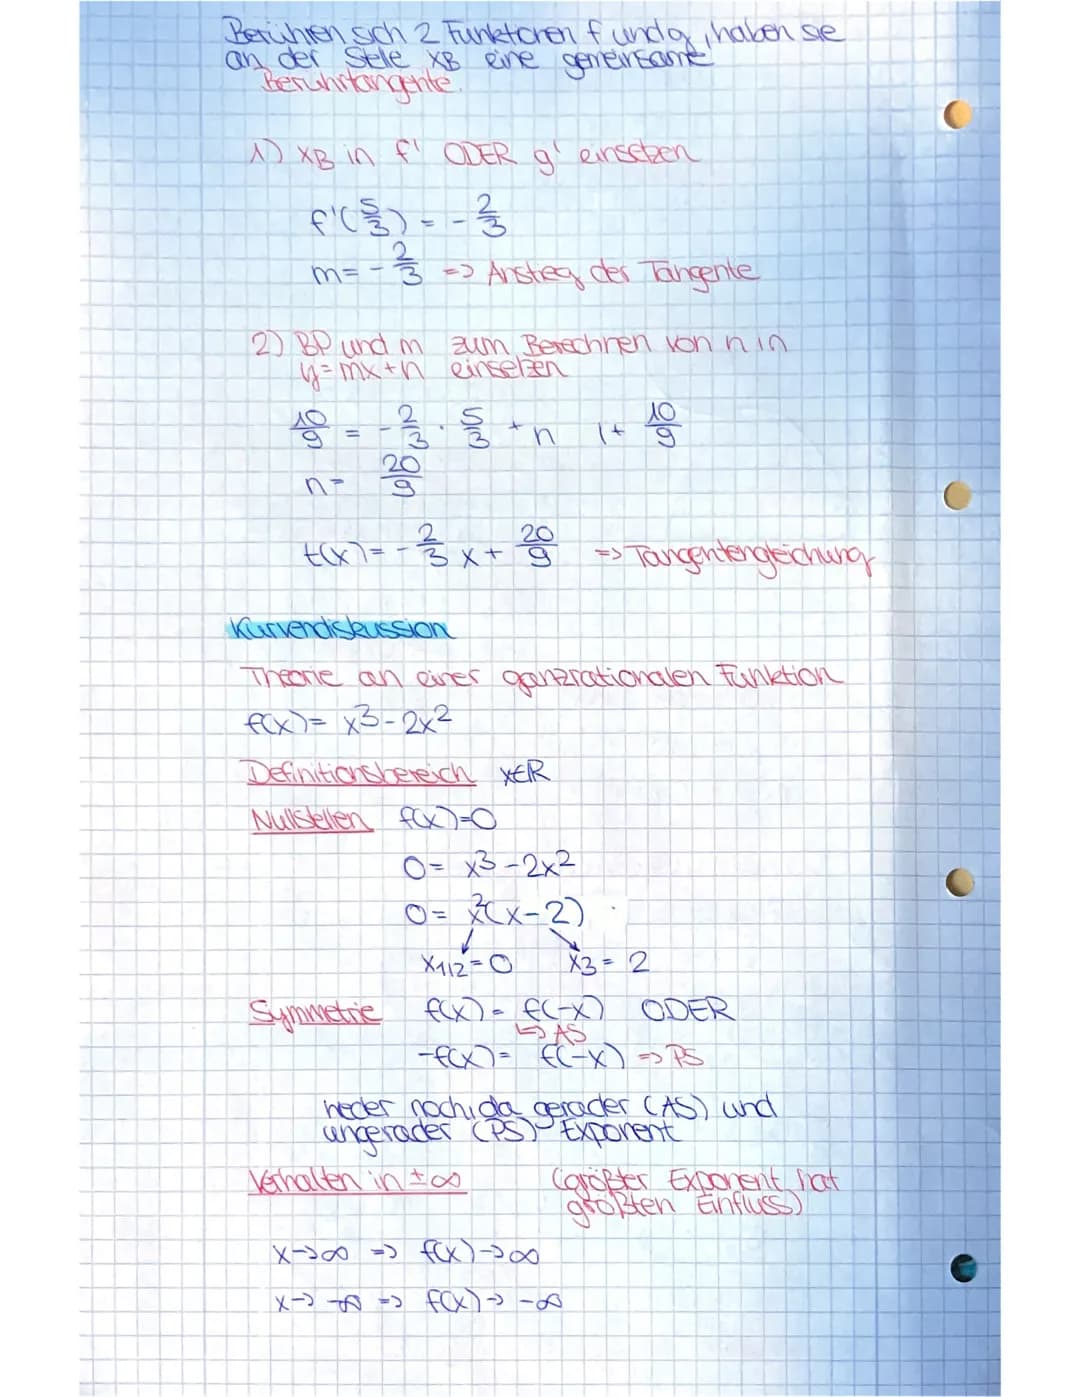 Berühren sich 2 Funktionen f und g, haben sie
an der Stelle xB eine gemeinsame
Berührtangente.
1) xB in f' ODER g' einsetzen
f'(5/3) = -2/3
m = -2/3 => Anstieg der Tangente
2) BP und m zum Berechnen von n in
y = mx + n einsetzen
10/9 = -2/3 · 5/3 + n |+ 10/9
n = 20/9
t(x) = -2/3 x + 20/9 => Tangentengleichung
Kurvendiskussion
Theorie an einer ganzrationalen Funktion
f(x) = x³ - 2x²
Definitionsbereich x∈R
Nullstellen f(x)=0
0 = x³ - 2x²
0 = x²(x-2)
x1/2 = 0 x3 = 2
Symmetrie f(x) = f(-x) ODER
↳ AS
-f(x) = f(-x) => PS
weder noch, da gerader (AS) und
ungerader (PS) Exponent
Verhalten in ±∞ (größter Exponent hat
größten Einfluss)
x→∞ => f(x)→∞
x→ -∞ => f(x)→ -∞